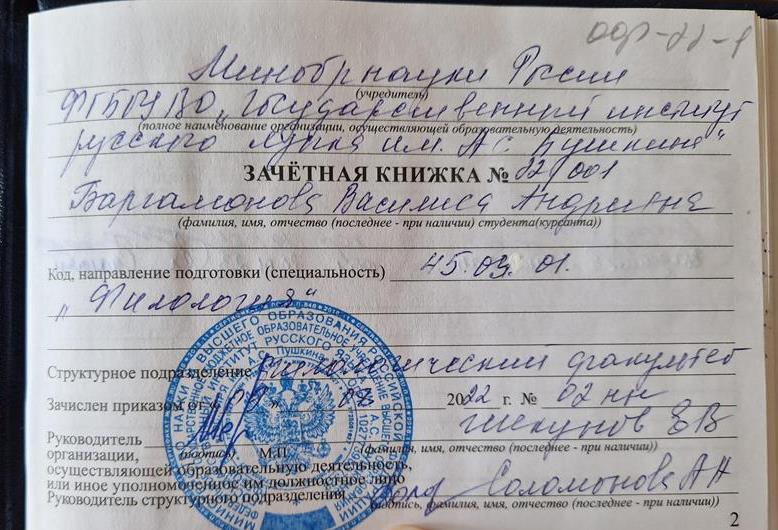 ОФР-22-1
Минобрнауки России
(учредитель)
ФГБОУ ВО „Государственный институт
(полное наименование организации, осуществляющей образовательную деятельность)
русского языка им. А.С. Пушкина"
ЗАЧЁТНАЯ КНИЖКА № 22 001
Баргамонова Василиса Андреевна
(фамилия, имя, отчество (последнее - при наличии) студента(курсанта))
Код, направление подготовки (специальность) 45.03.01.
„Филология"
Структурное подразделение филологический факультет
Зачислен приказом от « » 08 2022 г. № 02 нн
Руководитель Жекунов ЕВ
организации, (подпись) М.П. (фамилия, имя, отчество (последнее - при наличии))
осуществляющей образовательную деятельность,
или иное уполномоченное им должностное лицо
Руководитель структурного подразделения Соломонова АН
(подпись, фамилия, имя, отчество (последнее - при наличии))
2